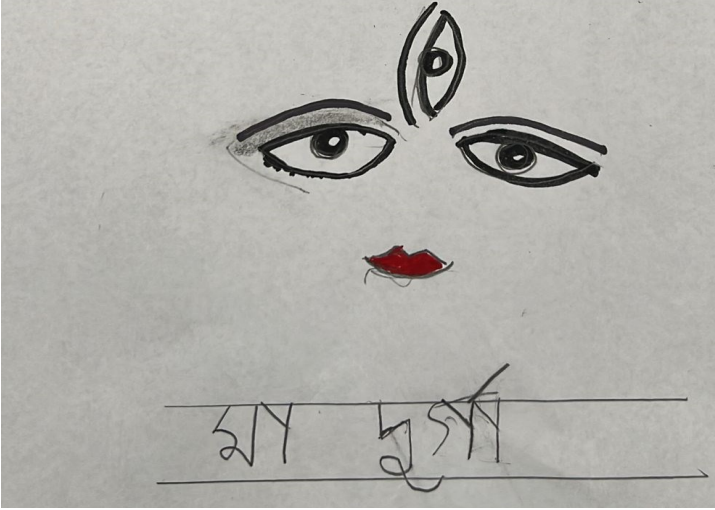 মা দুর্গা